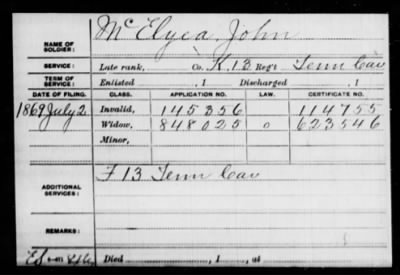 NAME OF SOLDIER: McElyea, John
SERVICE: Late rank, Co. K, 13 Reg't Tenn Cav
TERM OF SERVICE: Enlisted , 1 Discharged , 1
DATE OF FILING. CLASS. APPLICATION NO. LAW. CERTIFICATE NO.
1869 July 2 Invalid, 145356 114755
Widow, 848025 o 623546
Minor,
ADDITIONAL SERVICES: F 13 Tenn Cav
REMARKS:
Died , 1 , at